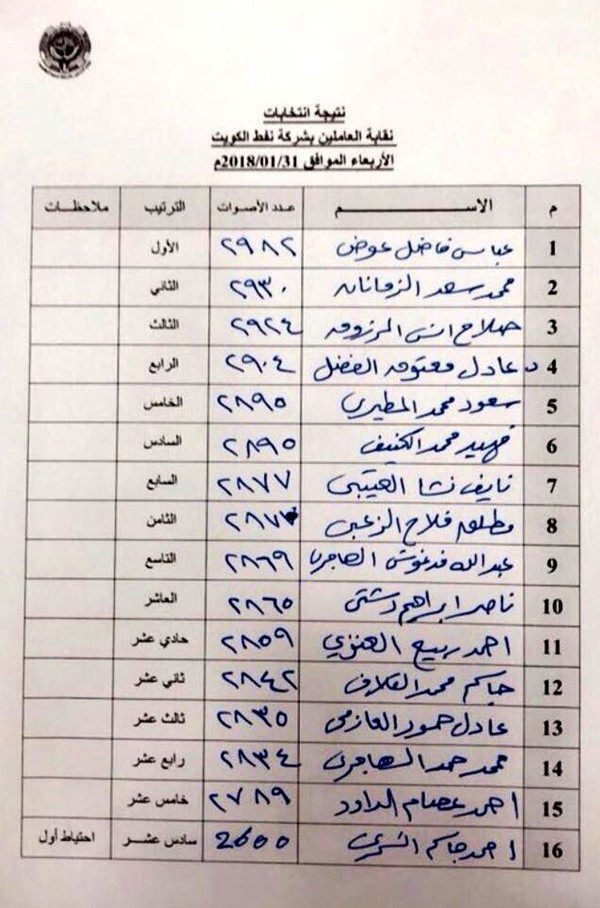 نتيجة انتخابات
نقابة العاملين بشركة نفط الكويت
الأربعاء الموافق 2018/01/31م
م الاســـــم عدد الأصوات الترتيب ملاحظات
1 عباس فاضل عوض ٢٩٨٢ الأول
2 محمد سعد الزمانان ٢٩٣٠ الثاني
3 صلاح انس المرزوق ٢٩٢٤ الثالث
4 د. عادل معتوق الفضل ٢٩٠٤ الرابع
5 سعود محمد المطيري ٢٨٩٥ الخامس
6 فهيد محمد ٢٨٩٥ السادس
7 نايف نشا العتيبي ٢٨٧٧ السابع
8 مطلق فلاح الزعبي الثامن
9 عبدالله الهاجري ٢٨٦٩ التاسع
10 ناصر ابراهيم دشتي ٢٨٦٥ العاشر
11 احمد ربيع العنزي ٢٨٥٩ حادي عشر
12 جاسم محمد القلاف ٢٨٤٢ ثاني عشر
13 عادل حمود العازمي ٢٨٣٥ ثالث عشر
14 محمد حمد الهاجري ٢٨٣٤ رابع عشر
15 احمد عصام الداود ٢٧٨٩ خامس عشر
16 احمد جاسم 2600 سادس عشـــر احتياط أول